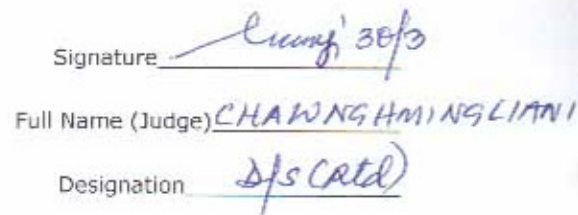 Signature 30/3
Full Name (Judge) CHAWNGHMINGLIANI
Designation D/S (Rtd)